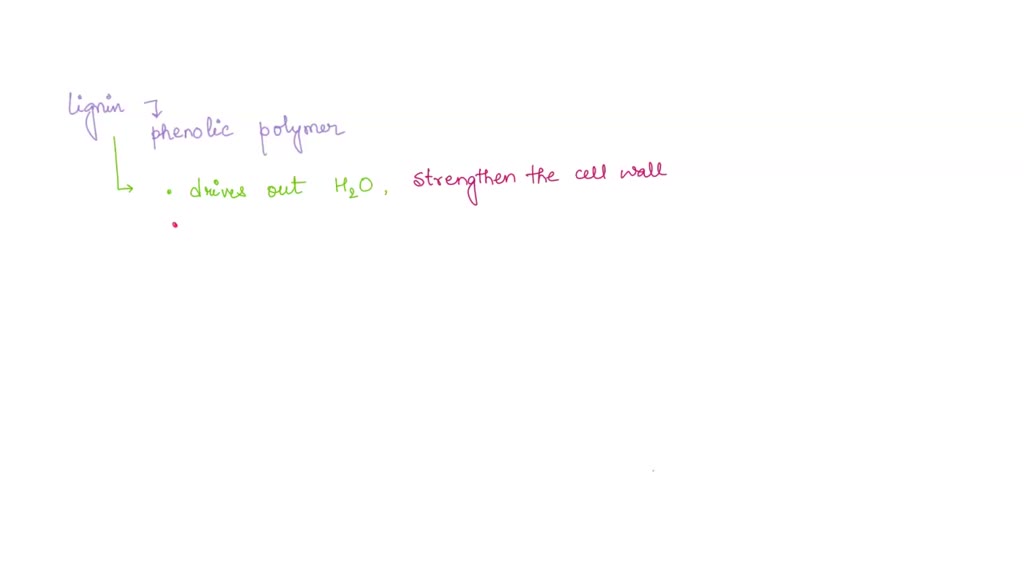 lignin
phenolic polymer
• drives out H₂O, strengthen the cell wall
•